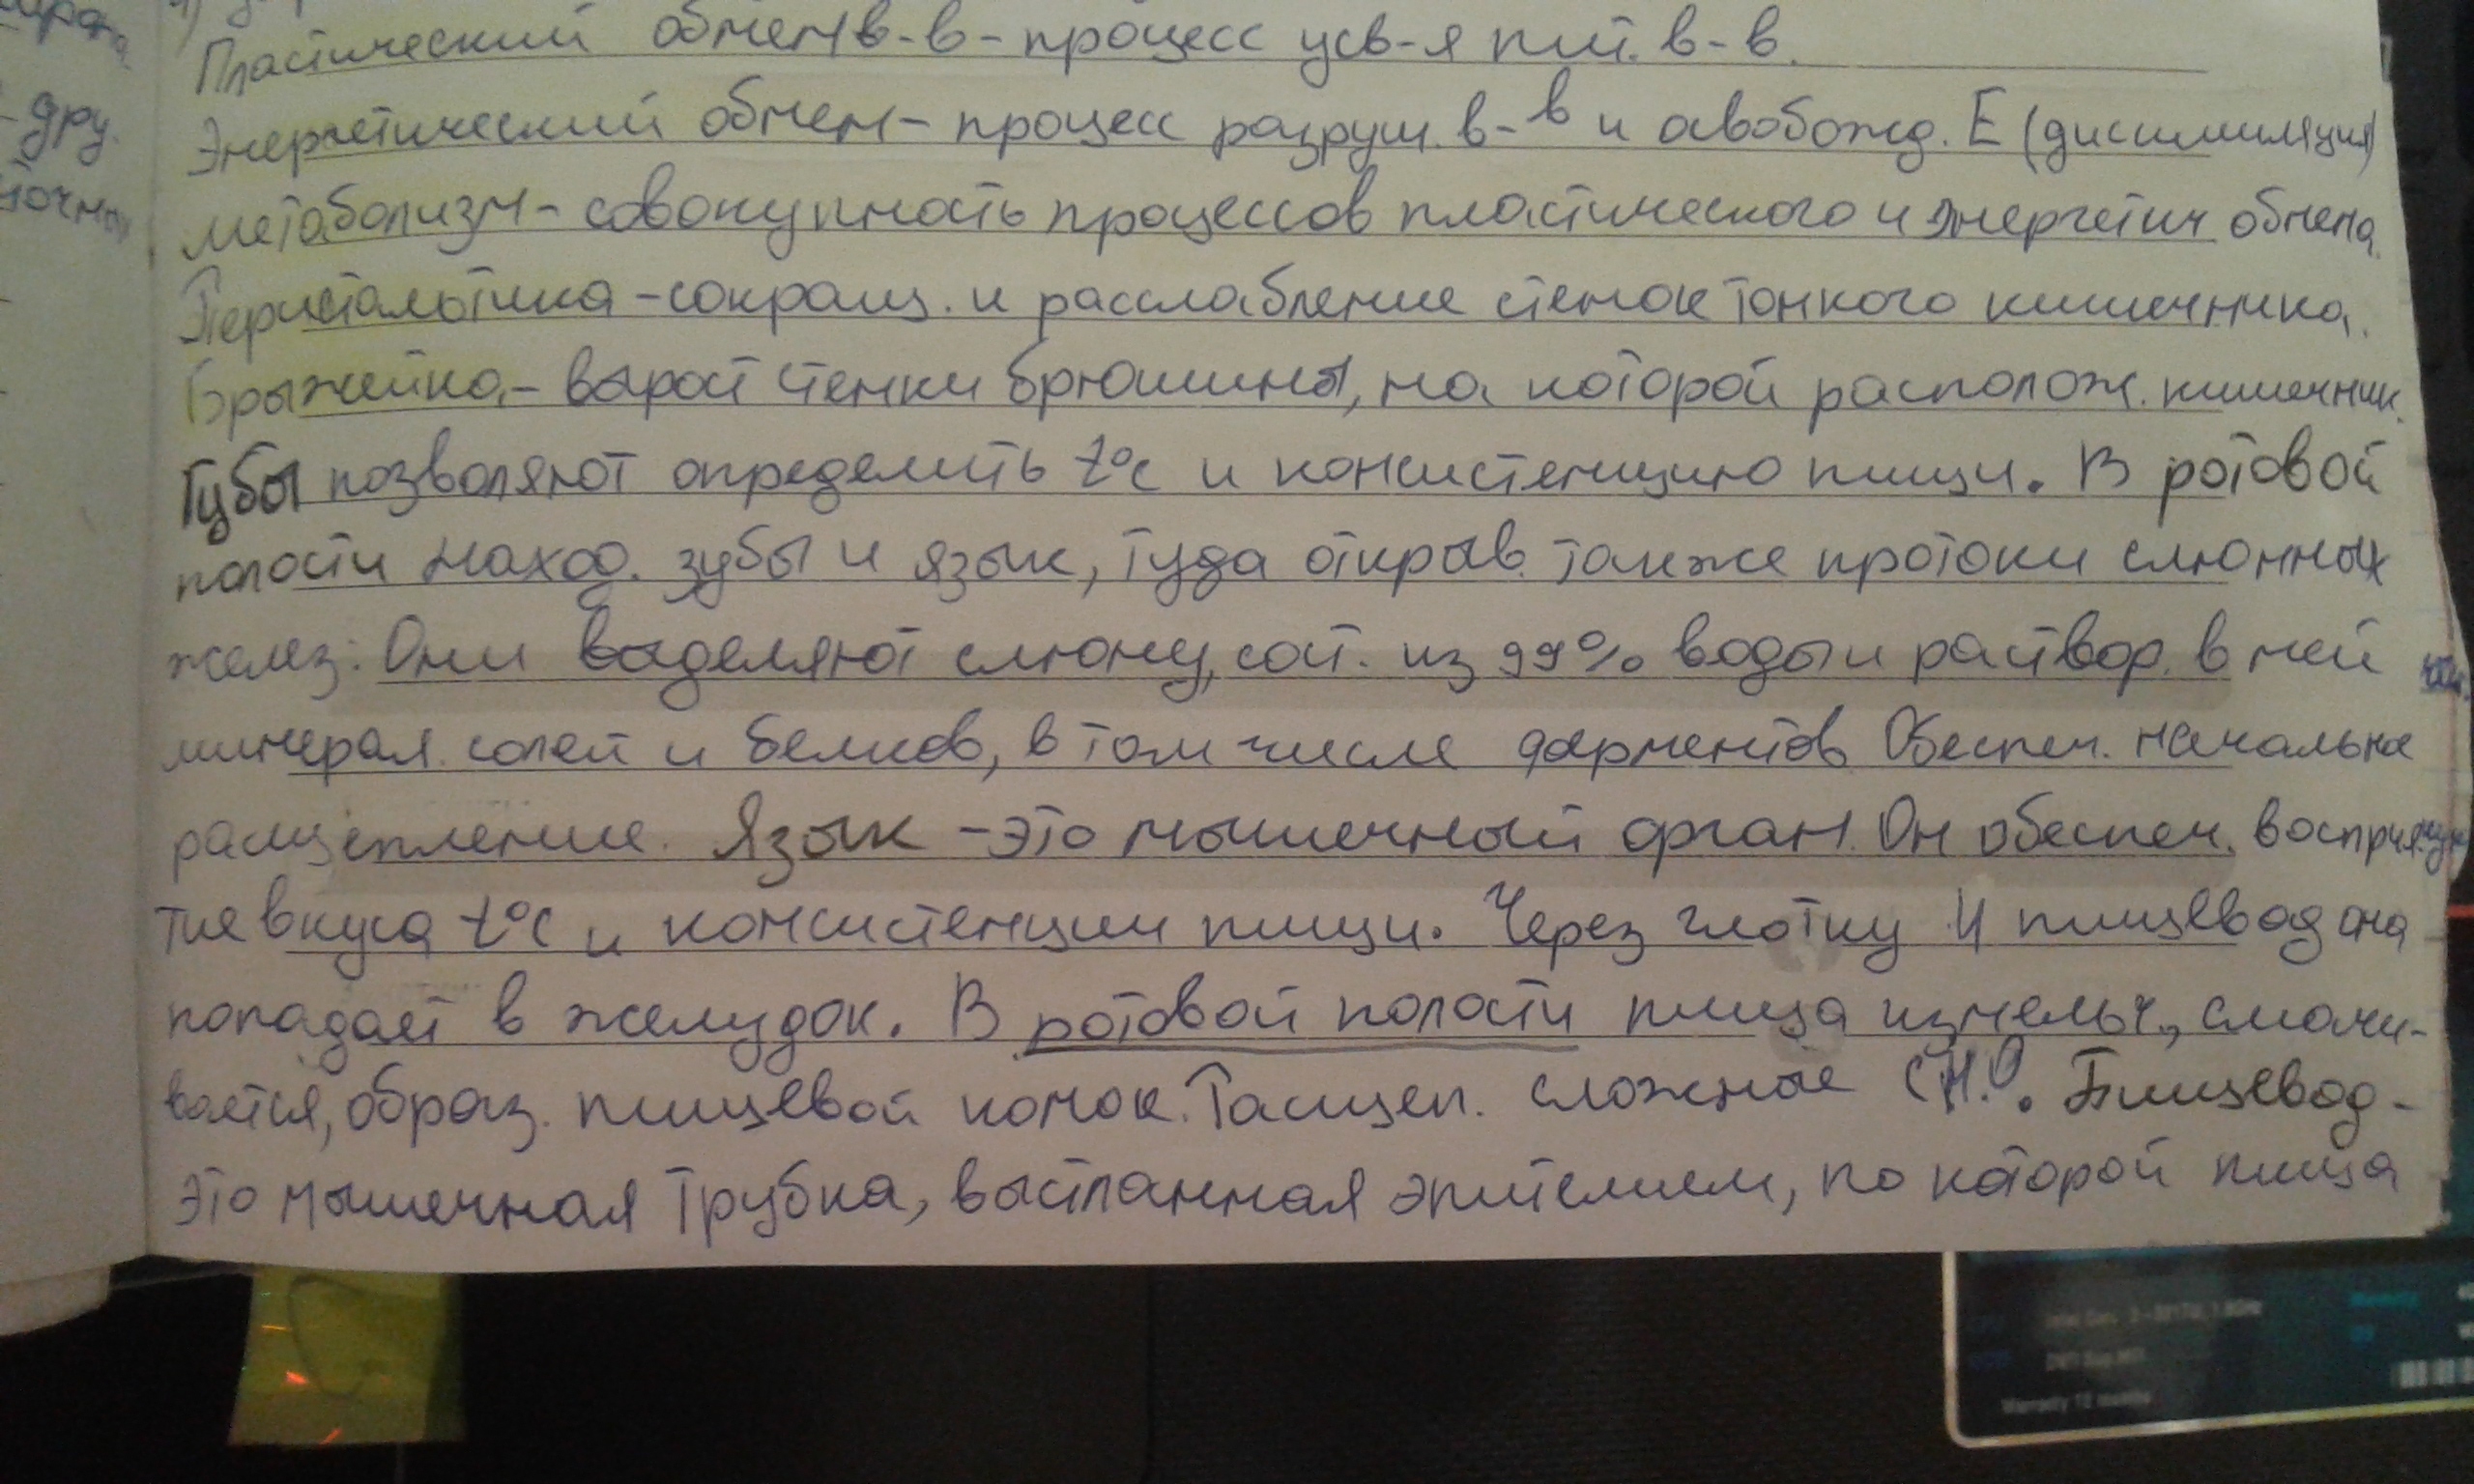 Пластический обмен в-в - процесс усв-я пит. в-в.
Энергетический обмен - процесс разруш. в-в и освобожд. E (диссимиляция)
Метаболизм - совокупность процессов пластического и энергетич обмена.
Перистальтика - сокращ. и расслабление стенок тонкого кишечника.
Брыжейка - вырост стенки брюшины, на которой располож. кишечник.
Губы позволяют определить t°C и консистенцию пищи. В ротовой
полости наход. зубы и язык, туда открыв. также протоки слюнных
желез. Они выделяют слюну, сост. из 99% воды и раствор. в ней
минерал. солей и белков, в том числе ферментов. Обеспеч. начальное
расщепление. Язык - это мышечный орган. Он обеспеч. восприя-
тие вкуса t°C и консистенции пищи. Через глотку и пищевод она
попадает в желудок. В ротовой полости пища измельч., смачи-
вается, образ. пищевой комок. Расщеп. сложные CH.O. Пищевод -
это мышечная трубка, выстланная эпителием, по которой пища
дру.
Warranty 12 months